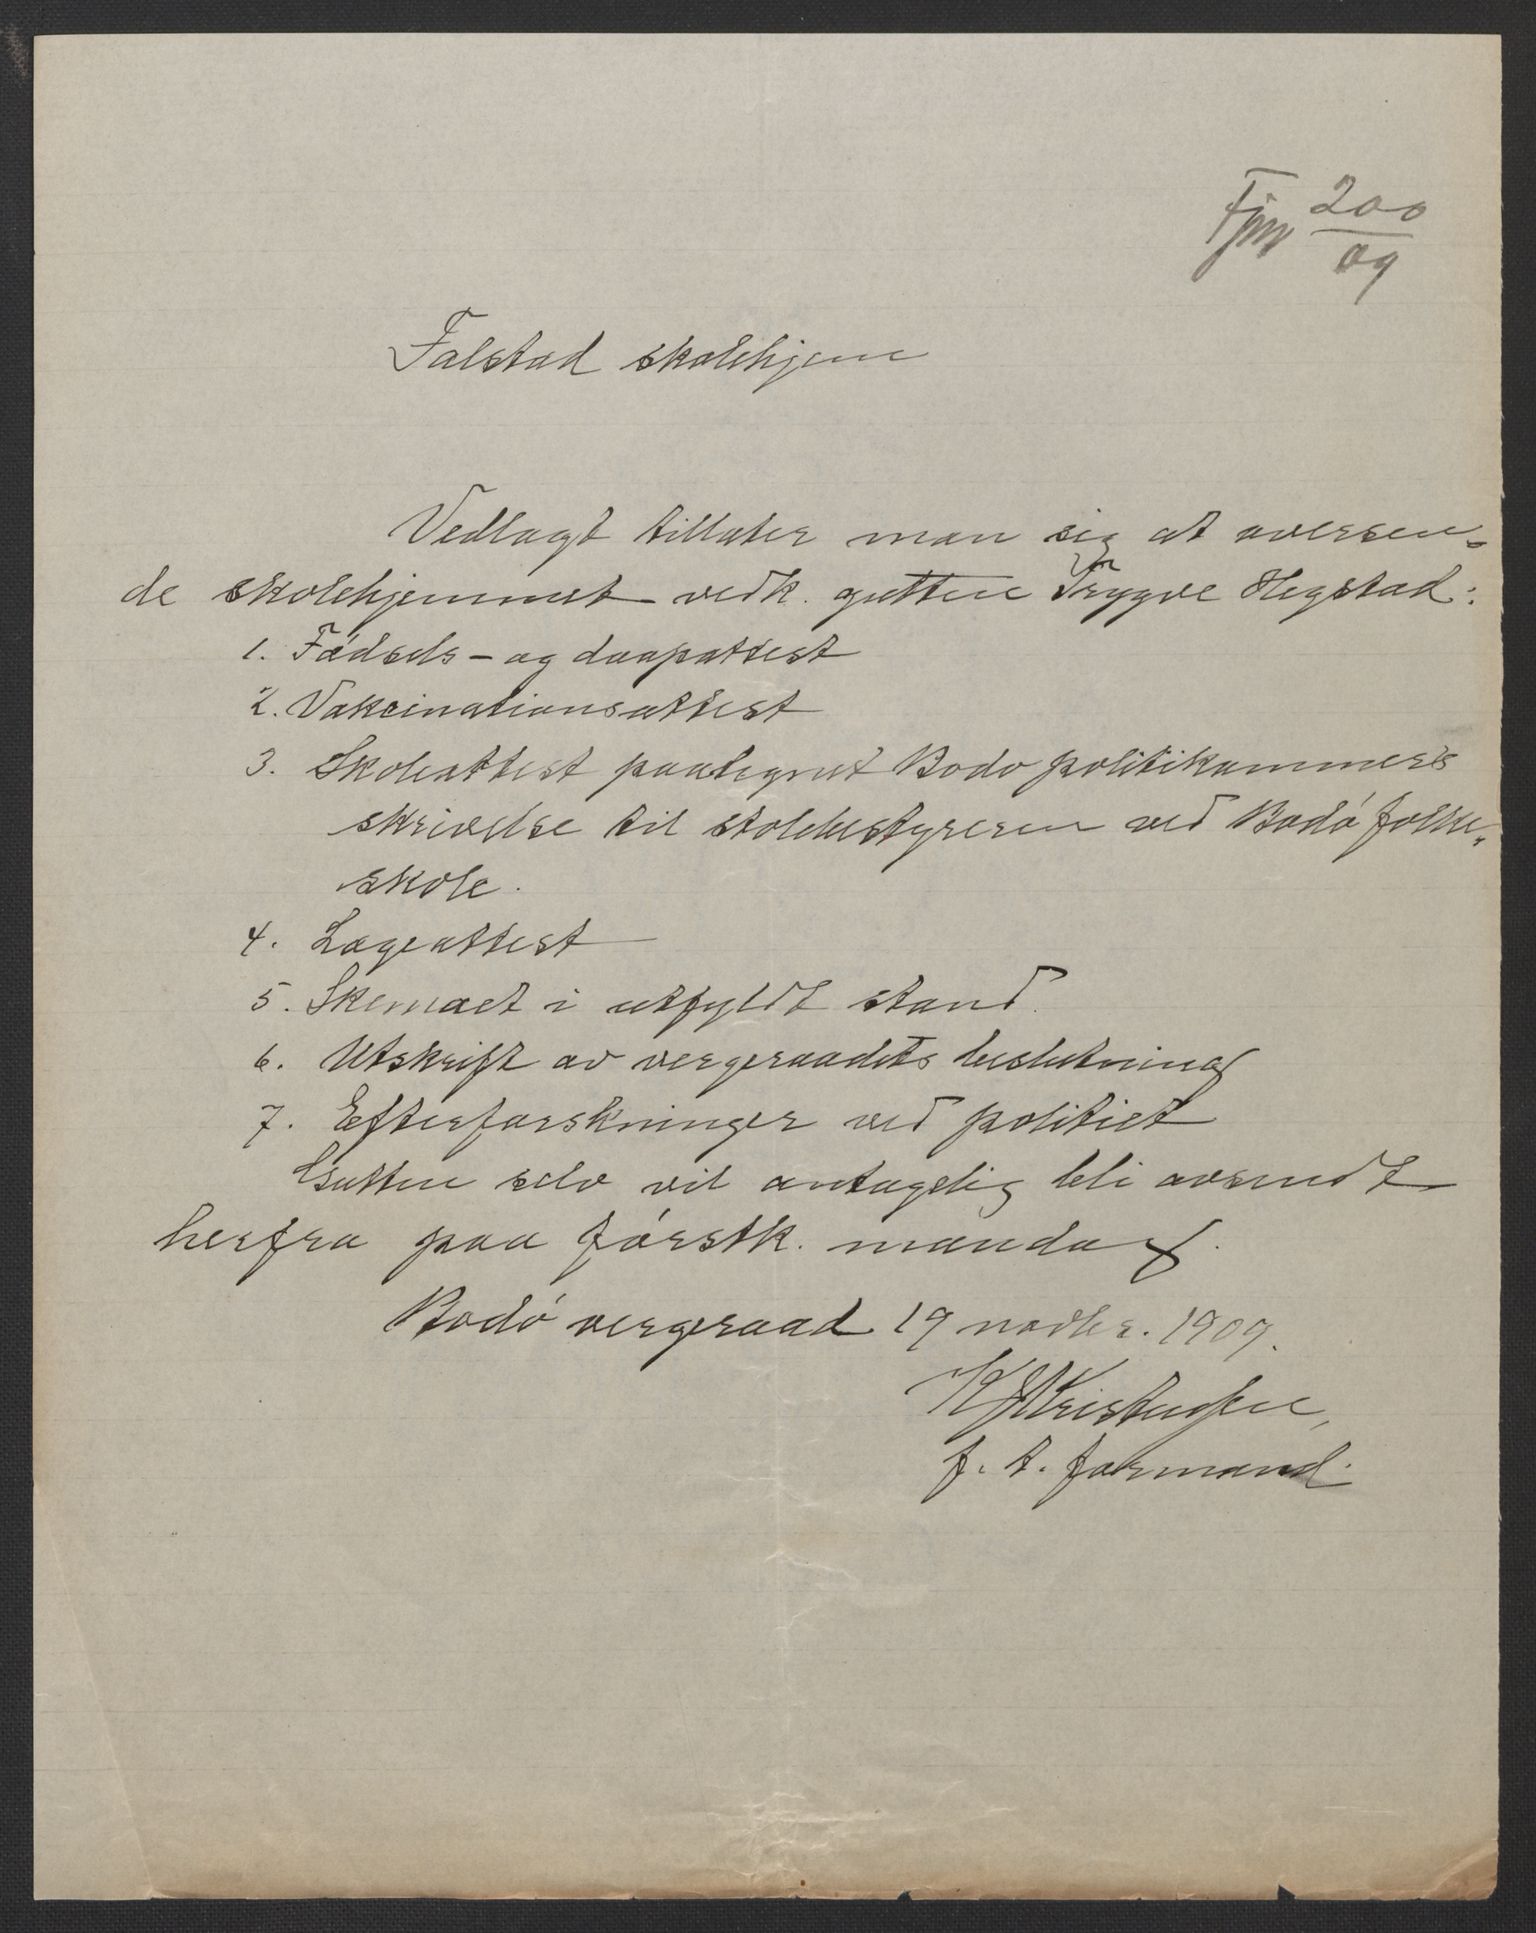 200
09
Falstad skolehjem
Vedlagt tillater man sig at oversen-
de skolehjemmet vedk. gutten Trygve Hegstad:
1. Fødsels- og daapattest
2. Vakcinationsattest
3. Skoleattest paategnet Bodø politikammers
skrivelse til skolebestyreren ved Bodø folke-
skole.
4. Lægeattest
5. Skemaet i utfyldt stand.
6. Utskrift av vergeraadets beslutning
7. Efterforskninger ved politiet
Gutten selv vil antagelig bli avsendt
herfra paa førstk. mandag.
Bodø vergeraad 19 novbr. 1909.
f. t. formand.